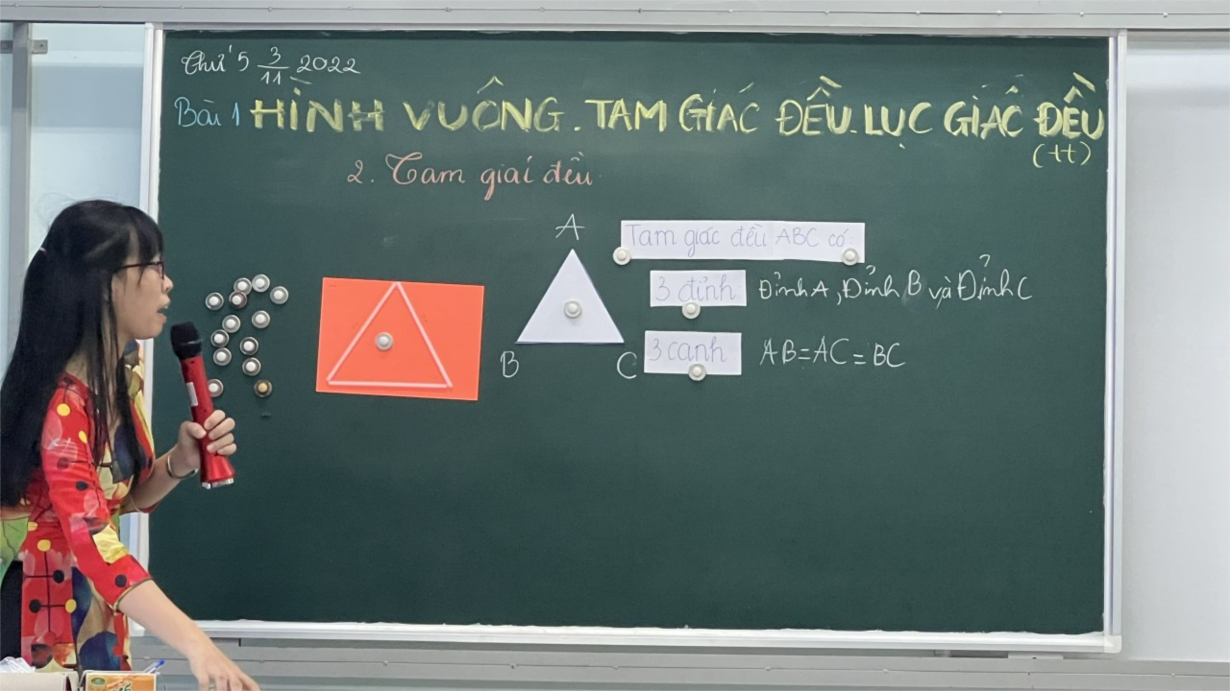 Thứ 5 3/11 2022
Bài 1 HÌNH VUÔNG. TAM GIÁC ĐỀU. LỤC GIÁC ĐỀU
(tt)
2. Tam giái đều
A
B
C
Tam giác đều ABC có
3 đỉnh Đỉnh A, Đỉnh B và Đỉnh C
3 cạnh AB = AC = BC